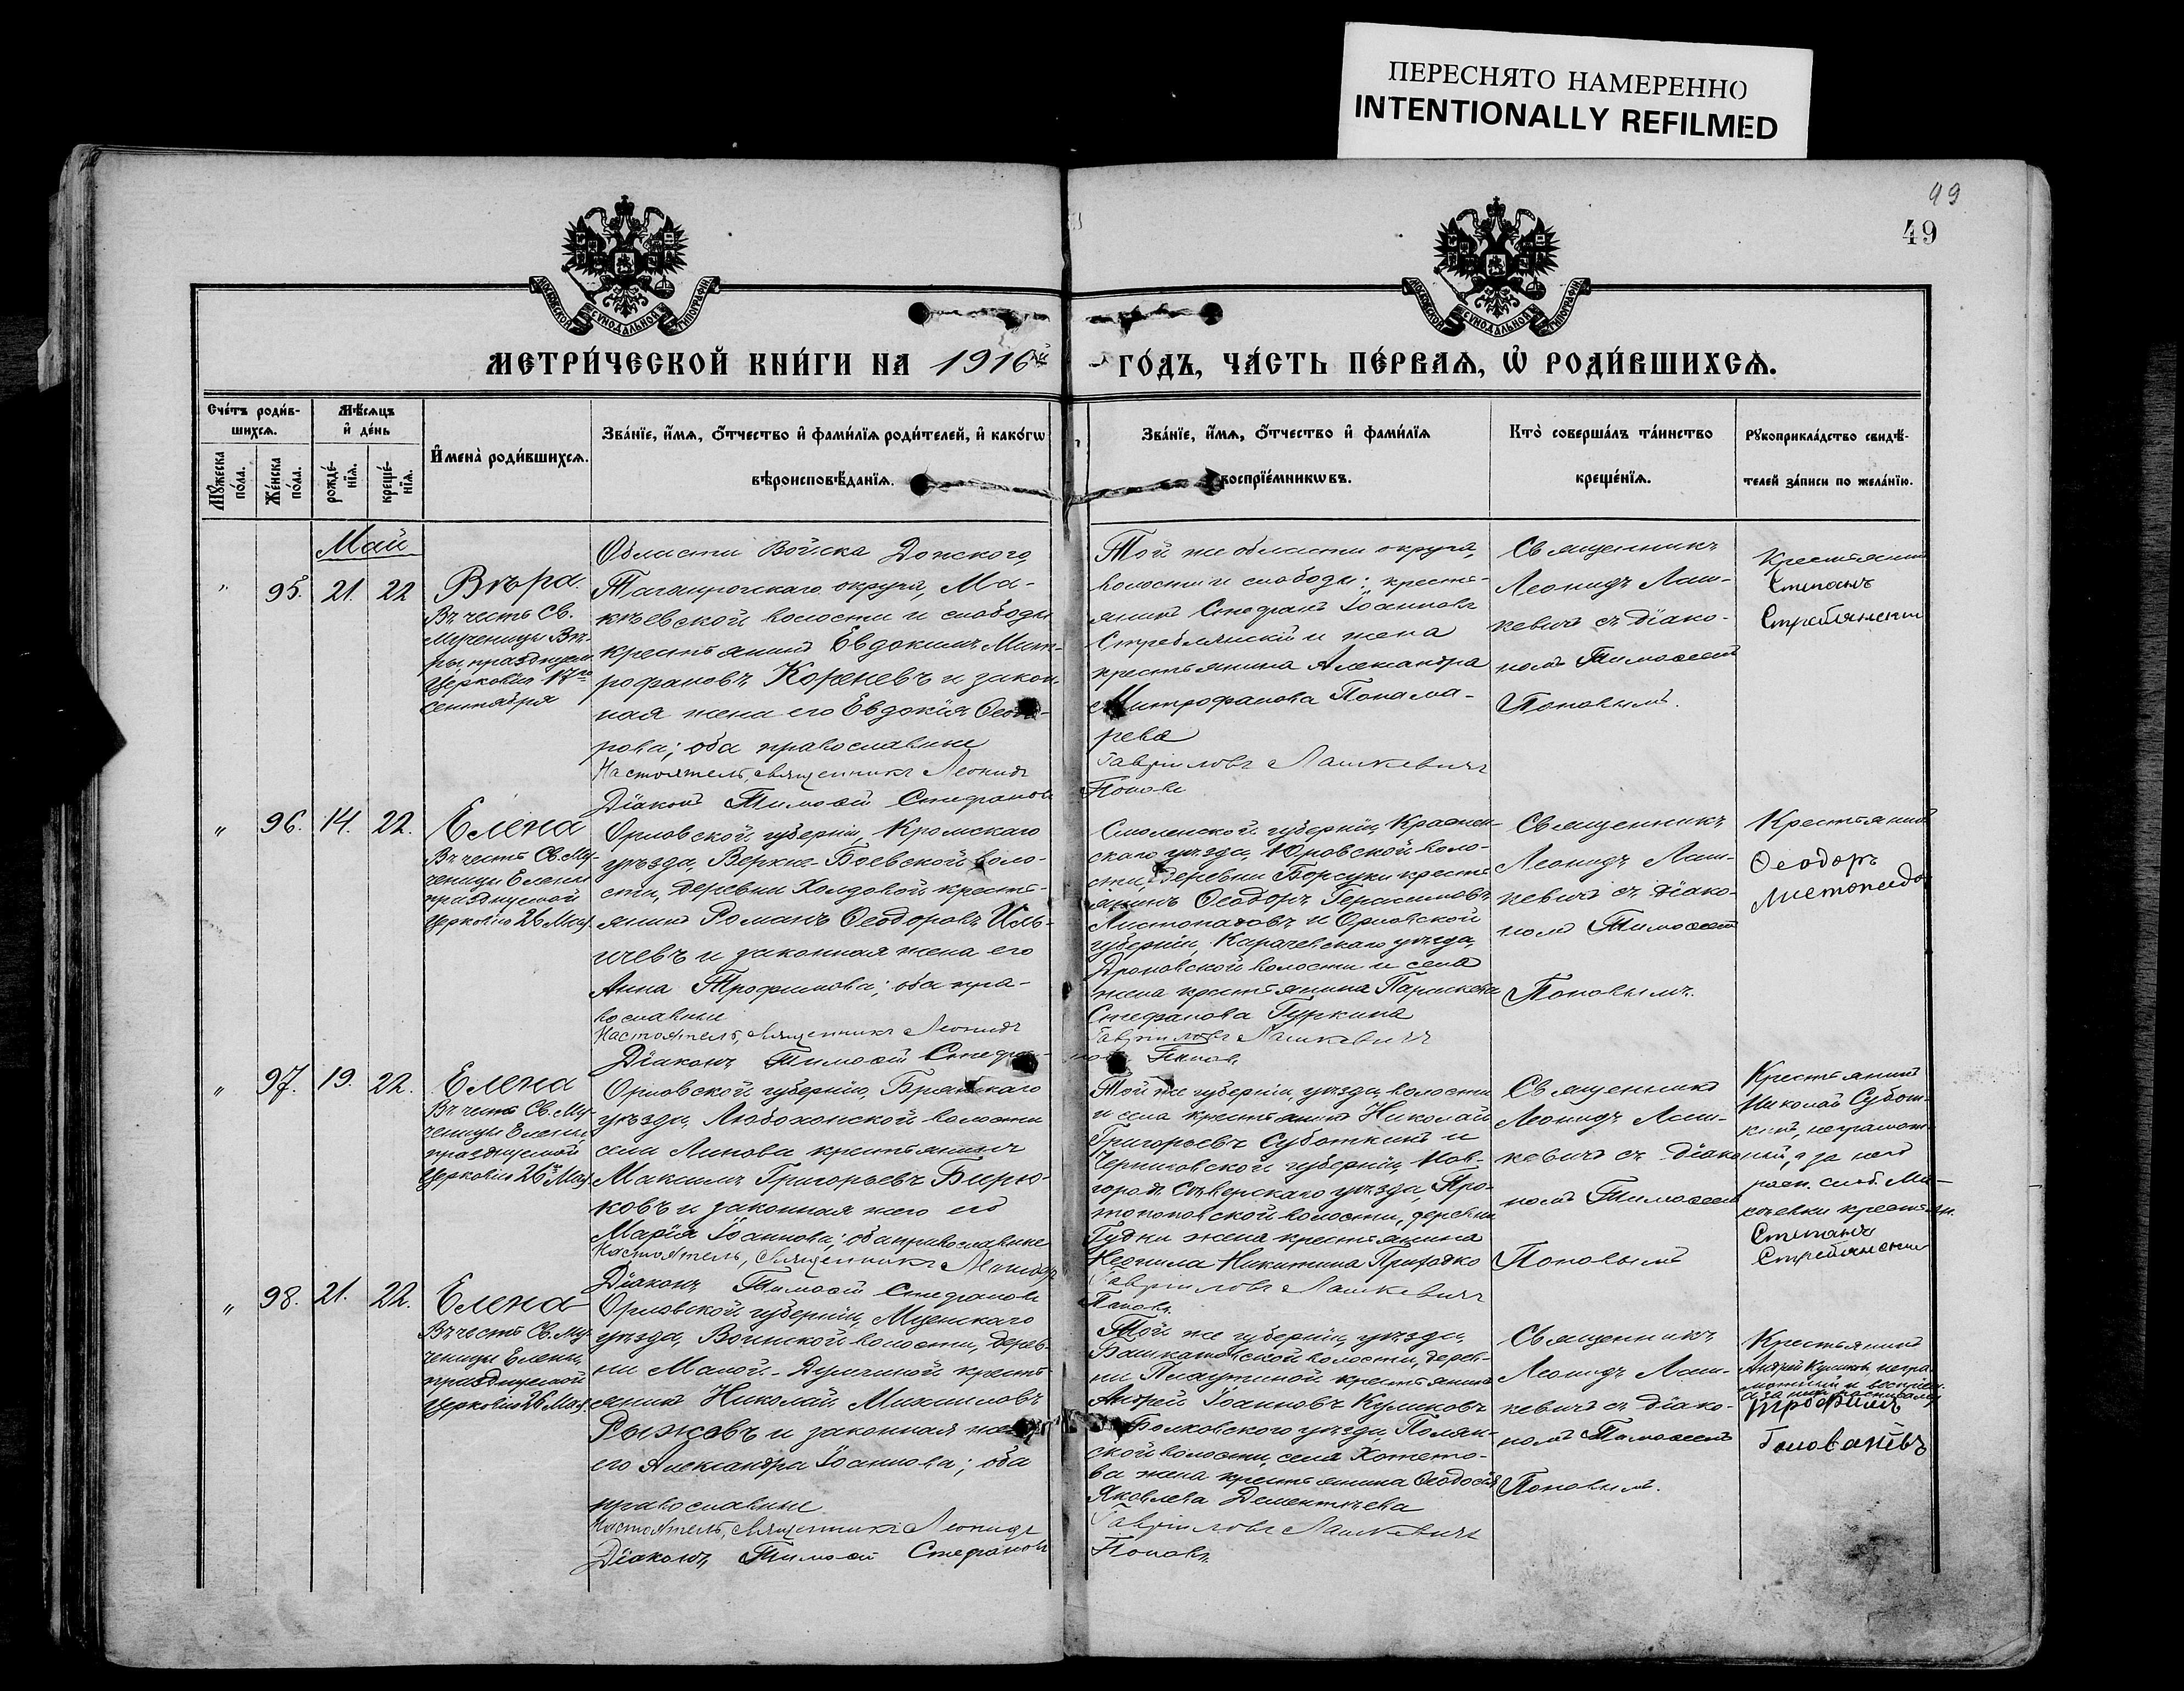 ПЕРЕСНЯТО НАМЕРЕННО
INTENTIONALLY REFILMED
49
49
МЕТРИ́ЧЕСКОЙ КНИ́ГИ НА 1916й ГО́ДЪ, ЧА́СТЬ ПЕ́РВАѦ, Ѡ҆ РОДИ́ВШИХСѦ.
Сче́тъ роди́в-
шихсѧ.
Мꙋ́жеска по́ла.
Же́нска по́ла.
Мѣ́сѧцъ
и҆ де́нь
рожде́-
нїѧ.
креще́-
нїѧ.
И҆мена̀ роди́вшихсѧ.
Зва́нїе, и҆́мѧ, ѻ҆́тчество и҆ фами́лїѧ роди́телей, и҆ како́гѡ
вѣроисповѣ́данїѧ.
Зва́нїе, и҆́мѧ, ѻ҆́тчество и҆ фами́лїѧ
воспрїе́мникѡвъ.
Кто̀ соверша́лъ та́инство
креще́нїѧ.
Рꙋкоприкла́дство свидѣ́-
телей за́писи по жела́нїю.
Май
" 95. 21. 22
Вѣра.
Въ честь Св.
Мученицы Вѣ-
ры празднуем.
Церковію 17го
Сентября
Области Войска Донского,
Таганрогскаго округа, Ма-
кѣевской волости и слободы
крестьянинъ Евдокимъ Мит-
рофановъ Кореневъ и закон-
ная жена его Евдокія Ѳеодо-
рова; оба православные
Настоятель, священникъ Леонидъ
Діаконъ Тимоѳей Стефановъ
Той же области округа,
волости и слободы: кресть-
янинъ Стефанъ Іоанновъ
Стреблянскій и жена
крестьянина Александра
Митрофанова Понама-
рева
Гавріиловъ Лашкевичъ
Поповъ
Священникъ
Леонидъ Лаш-
кевичъ съ діако-
номъ Тимоѳеемъ
Поповымъ.
Крестьянинъ
Степанъ
Стреблянскій
" 96. 14. 22.
Елена
Въ честь Св. Му-
ченицы Елены
празднуемой
Церковію 26 Мая
Орловской губерніи, Кромскаго
уѣзда, Верхне-Боевской воло-
сти, деревни Холдовой кресть-
янинъ Романъ Ѳеодоровъ Иль-
ичевъ и законная жена его
Анна Трофимова; оба пра-
вославные
Настоятель, священникъ Леонидъ
Діаконъ Тимоѳей Стефа-
Смоленской губерніи, Краснен-
скаго уѣзда, Юровской воло-
сти, деревни Борсуки кресть-
янинъ Ѳеодоръ Герасимовъ
Листопадовъ и Орловской
губерніи, Карачевскаго уѣзда,
Дроновской волости и села
жена крестьянина Параскева
Стефанова Гуркина
Гавріиловъ Лашкевичъ
новъ Поповъ
Священникъ
Леонидъ Лаш-
кевичъ съ діако-
номъ Тимоѳеемъ
Поповымъ.
Крестьянинъ
Ѳеодоръ
Листопадо
" 97. 19. 22.
Елена
Въ честь Св. Му-
ченицы Елены
празднуемой
Церковію 26го Мая
Орловской губерніи, Брянскаго
уѣзда, Любохонской волости
села Липова крестьянинъ
Максимъ Григорьевъ Бирю-
ковъ и законная жена его
Марія Іоаннова; оба православные
Настоятель, священникъ Леонидъ
Діаконъ Тимоѳей Стефановъ
Той же губерніи, уѣзда, волости
и села крестьянинъ Николай
Григорьевъ Суботкинъ и
Черниговской губерніи, Нов-
городъ Сѣверскаго уѣзда, Про-
топоповской волости, деревни
Гудни жена крестьянина
Неонила Никитина Приходко
Гавріиловъ Лашкевичъ
Поповъ
Священникъ
Леонидъ Лаш-
кевичъ съ діако
номъ Тимоѳеемъ
Поповымъ
Крестьянинъ
Николай Субот-
кинъ, неграмот-
ный, а за него
росп. слоб. Ма-
кѣевки крестьян.
Степанъ
Стреблянскій
" 98. 21. 22.
Елена
Въ честь Св. Му-
ченицы Елены,
празднуемой
Церковію 26 Мая.
Орловской губерніи, Мценскаго
уѣзда, Воинской волости, дерев-
ни Малой-Думчиной кресть-
янинъ Николай Михаиловъ
Рыжовъ и законная жена
его Александра Іоаннова; оба
православные
Настоятель, священникъ Леонидъ
Діаконъ Тимоѳей Стефановъ
Той же губерніи, уѣзда,
Башкатовской волости, дерев-
ни Плаутиной крестьянинъ
Андрей Іоанновъ Куликовъ
и Болховскаго уѣзда, Полян-
ской волости, села Хотето-
ва жена крестьянина Ѳеодосія
Яковлева Дементьева
Гавріиловъ Лашкевичъ
Поповъ
Священникъ
Леонидъ Лаш-
кевичъ съ діако-
номъ Тимоѳеемъ
Поповымъ.
Крестьянинъ
Андрей Куликовъ, негра-
мотный
а за него росписался
Трофимъ
Головачёвъ